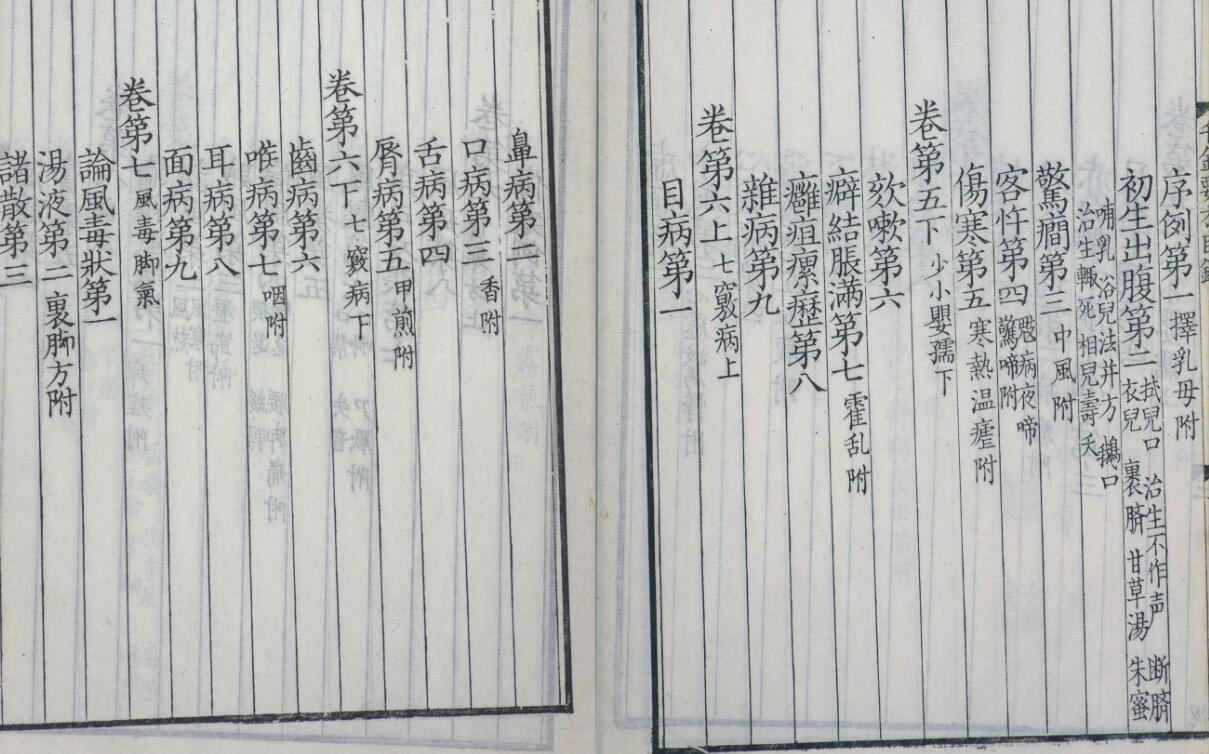 序例第一 擇乳母附
初生出腹第二 拭兒口 治生不作声 断臍 衣兒 裹臍 甘草湯 朱蜜
哺乳 浴兒法并方 鵝口 治生輙死 相兒壽夭
驚癇第三 中風附
客忤第四 鬾病夜啼 驚啼附
傷寒第五 寒熱温瘧附
卷第五下 少小嬰孺下
欬嗽第六
癖結脹滿第七 霍乱附
癰疽瘰癧第八
雜病第九
卷第六上 七竅病上
目病第一
鼻病第二
口病第三 香附
舌病第四
脣病第五 甲煎附
卷第六下 七竅病下
齒病第六
喉病第七 咽附
耳病第八
面病第九
卷第七 風毒脚氣
論風毒狀第一
湯液第二 裹脚方附
諸散第三